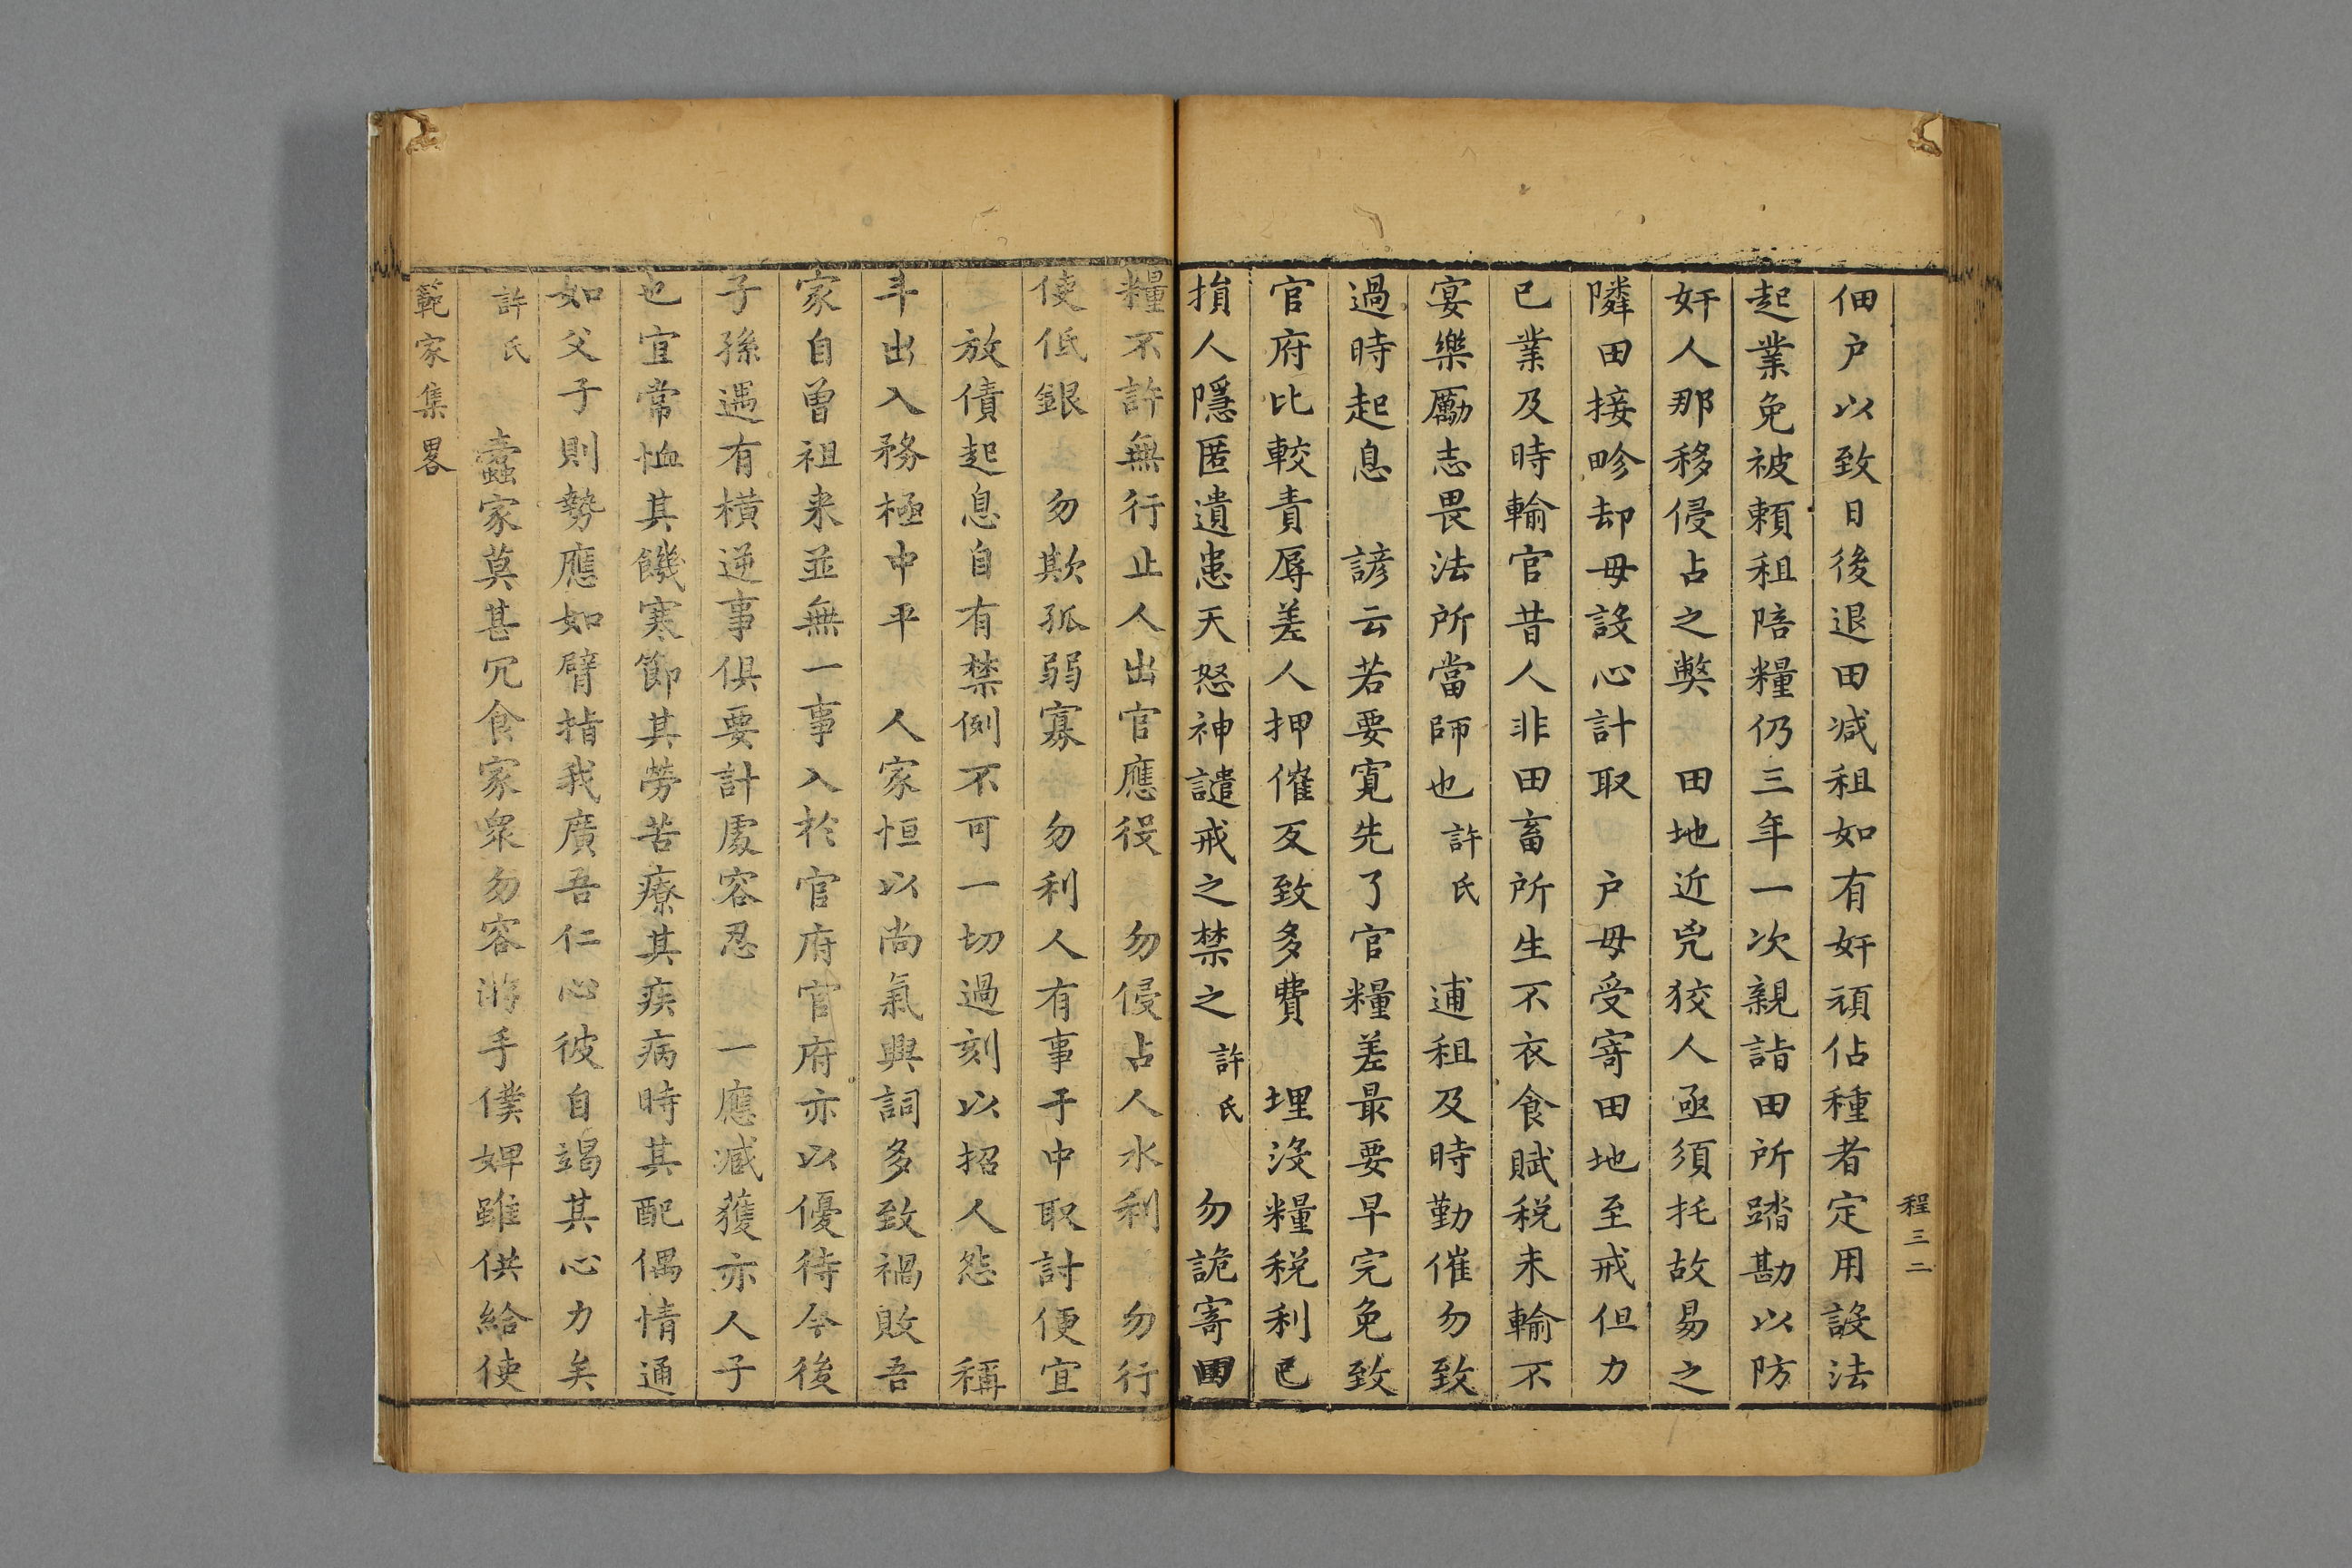 程三二
佃户以致日後退田減租如有奸頑佔種者定用設法
起業免被頼租陪糧仍三年一次親詣田所踏勘以防
奸人那移侵占之獘　田地近兇狡人亟須托故易之
隣田接畛却毋設心計取　户毋受寄田地至戒但力
已業及時輸官昔人非田畜所生不衣食賦税未輸不
宴樂勵志畏法所當師也許氏　逋租及時勤催勿致
過時起息　諺云若要寛先了官糧差最要早完免致
官府比較責辱差人押催反致多費　埋沒糧税利已
損人隱匿遺患天怒神譴戒之禁之許氏　勿詭寄田
糧不許無行止人出官應役　勿侵占人水利　勿行
使低銀　勿欺孤弱寡　勿利人有事于中取討便宜
放債起息自有禁例不可一切過刻以招人怨　稱
斗出入務極中平　人家恒以尚氣興詞多致禍敗吾
家自曾祖来並無一事入於官府官府亦以優待今後
子孫遇有横逆事俱要計處容忍　一應臧獲亦人子
也宜常恤其饑寒節其勞苦療其疾病時其配偶情通
如父子則勢應如臂指我廣吾仁心彼自竭其心力矣
許氏　蠧家莫甚冗食家衆勿容游手僕婢雖供給使
範家集畧